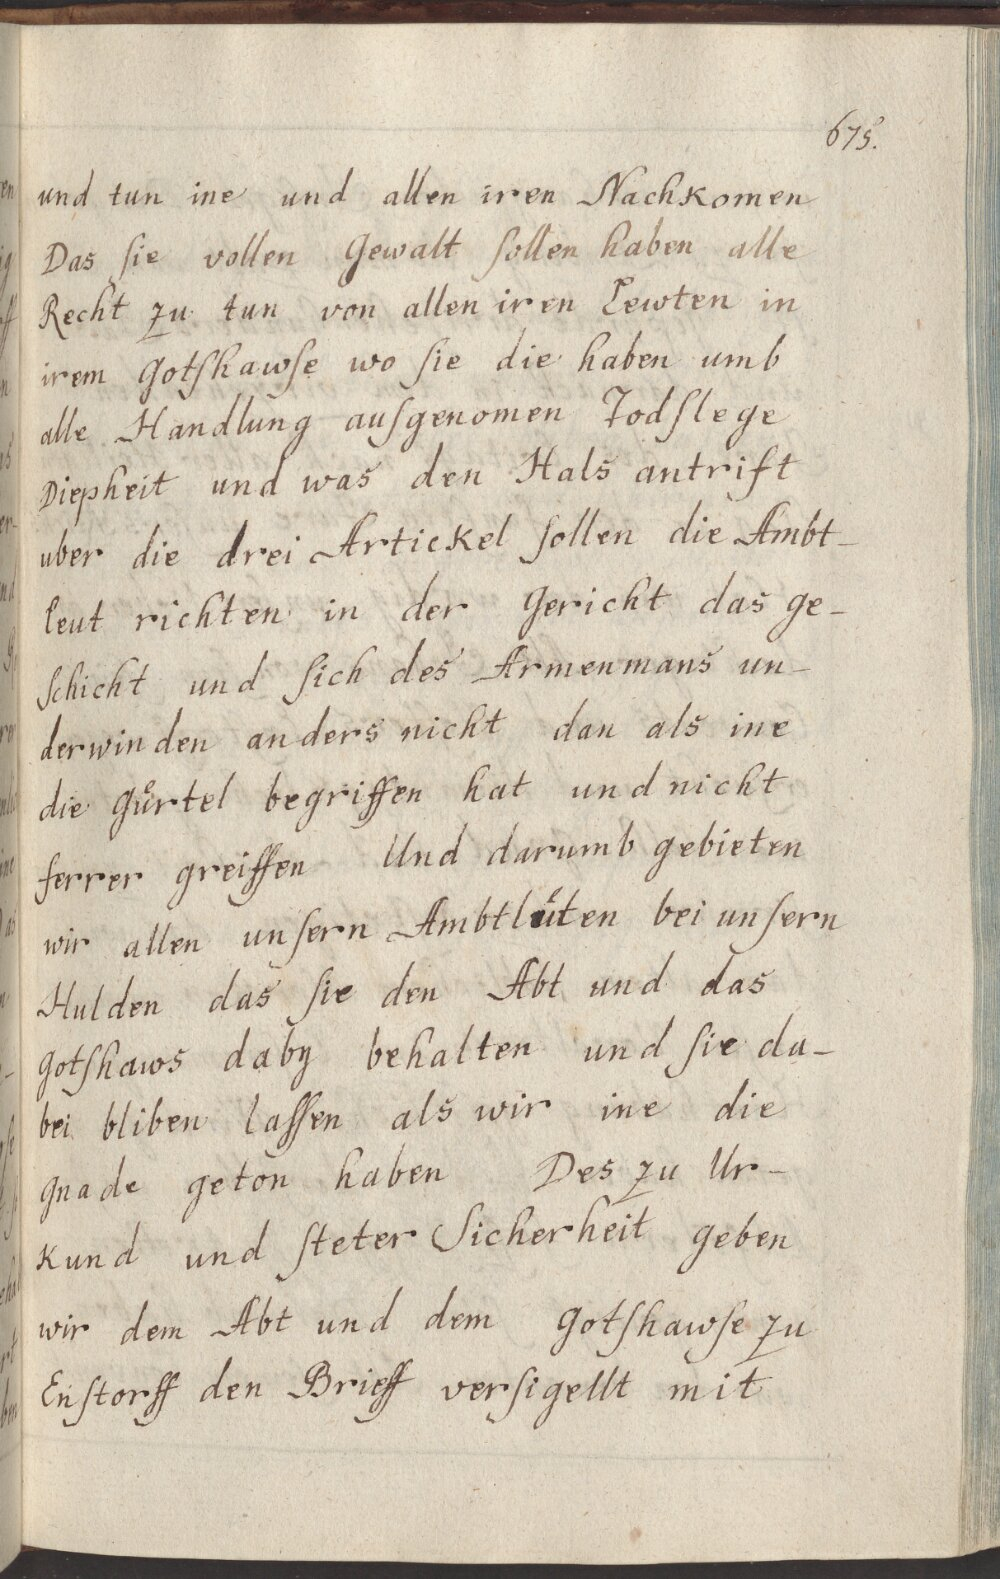 675.
und tun ine und allen iren Nachkomen
Das sie vollen Gewalt sollen haben alle
Recht zu tun von allen iren Lewten in
irem Gotshawse wo sie die haben umb
alle Handlung ausgenomen Todslege
Diepheit und was den Hals antrift
uber die drei Artickel sollen die Ambt-
leut richten in der Gericht das ge-
schicht und sich des Armenmans un-
derwinden anders nicht dan als ine
die Gůrtel begriffen hat und nicht
ferrer greiffen Und darumb gebieten
wir allen unsern Ambtlůten bei unsern
Hulden das sie den Abt und das
Gotshaws daby behalten und sie da-
bei bliben lassen als wir ine die
Gnade geton haben Des zu Ur-
kund und steter Sicherheit geben
wir dem Abt und dem Gotshawse zu
Enstorff den Brieff versigellt mit